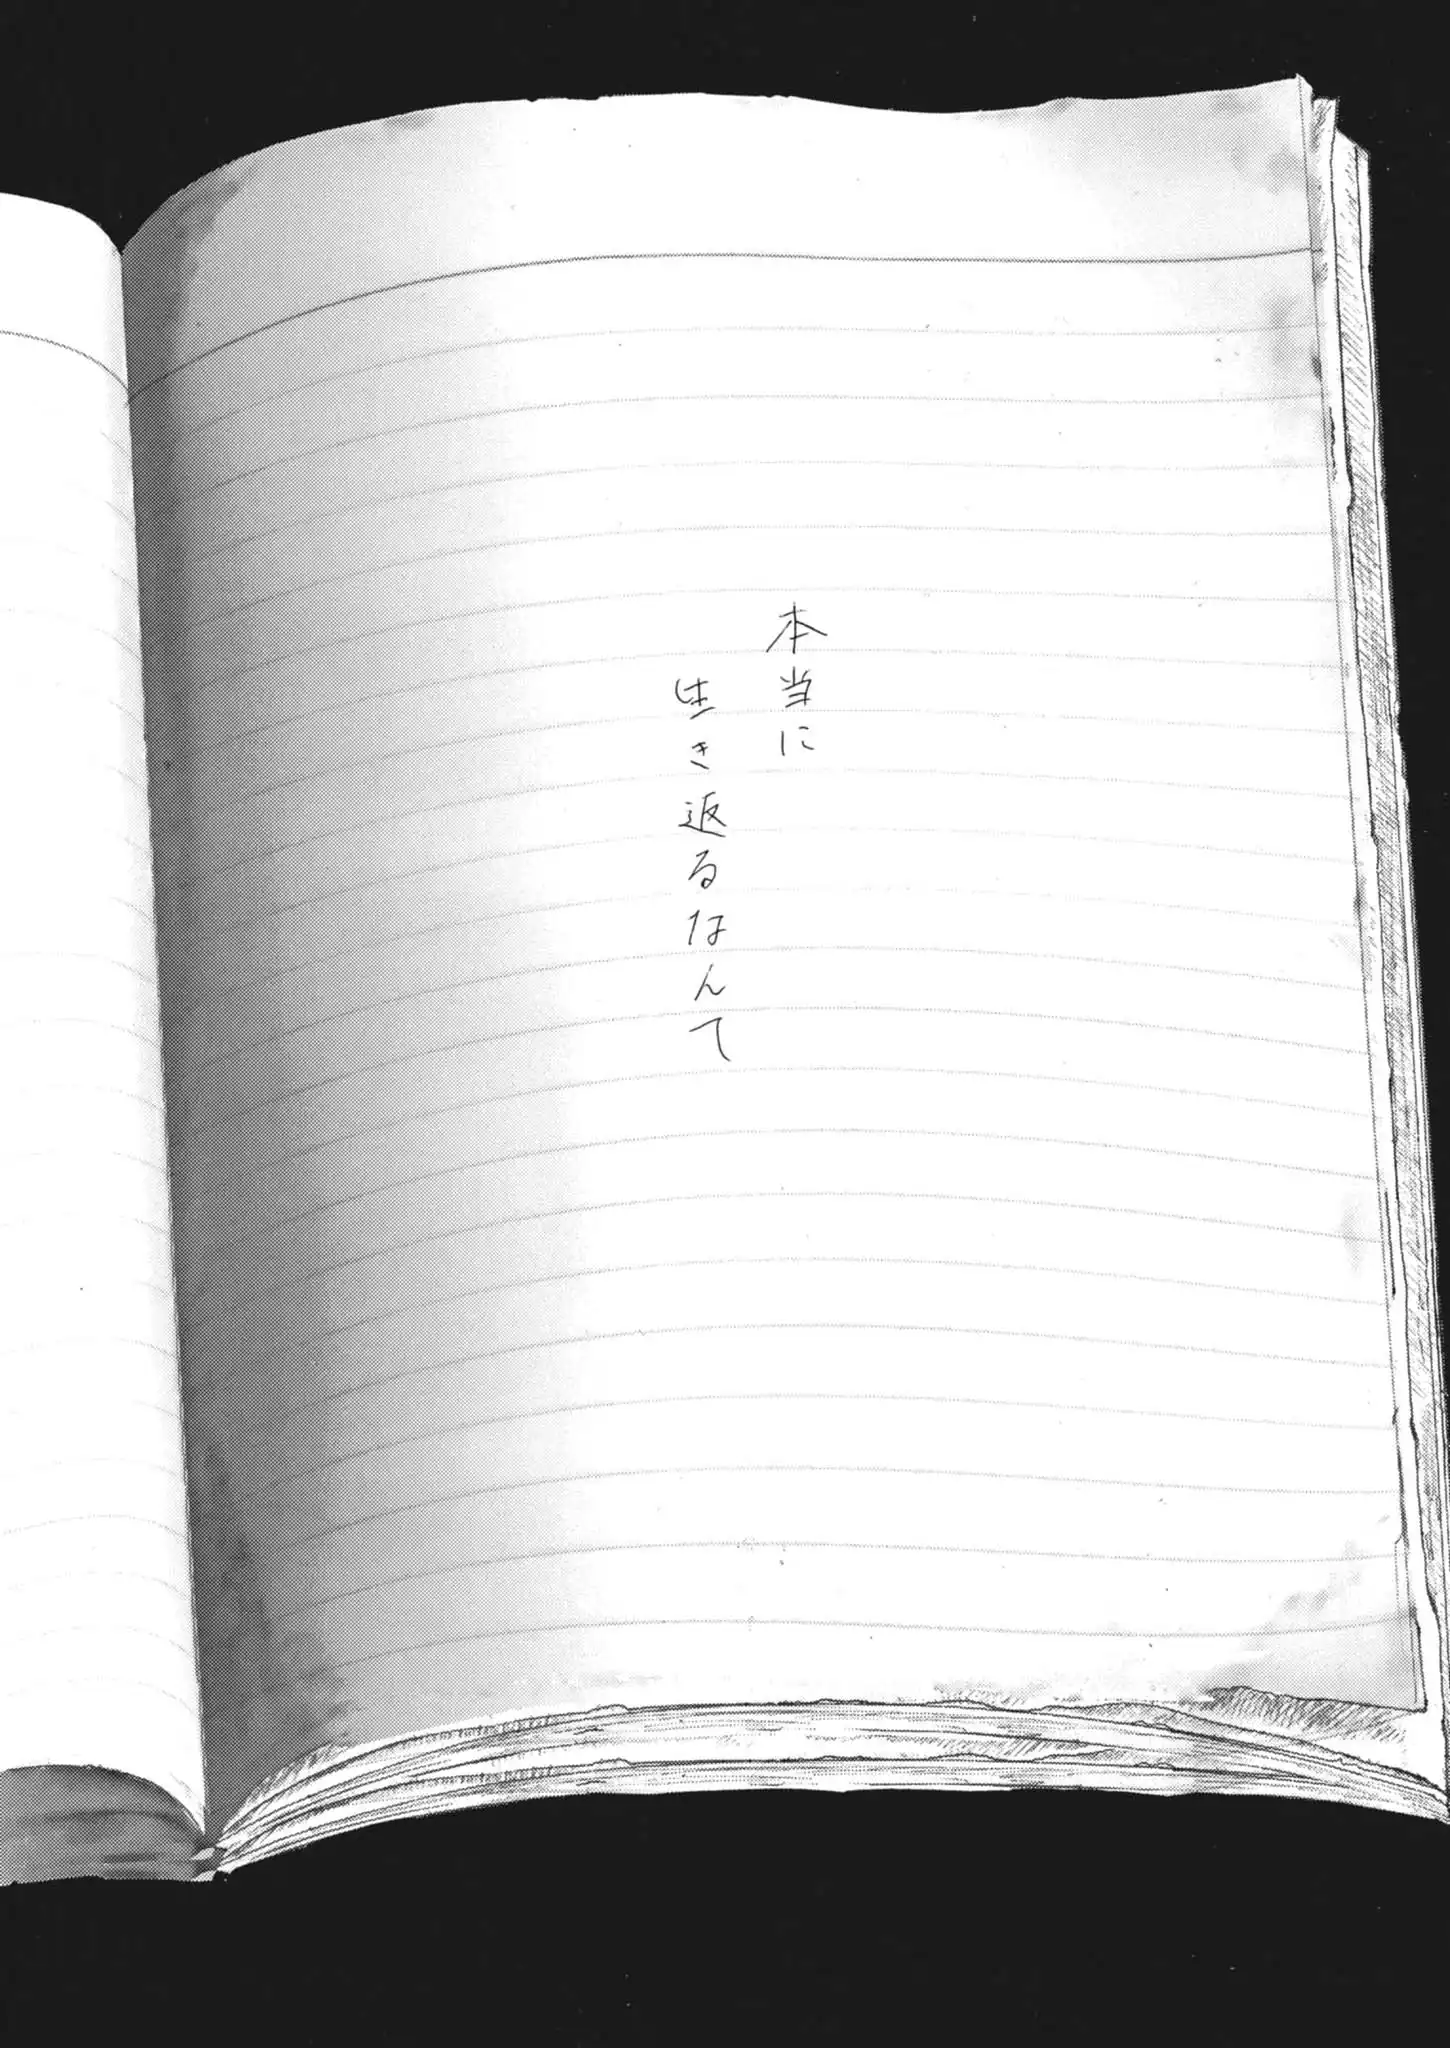 本当に
生き返るなんて